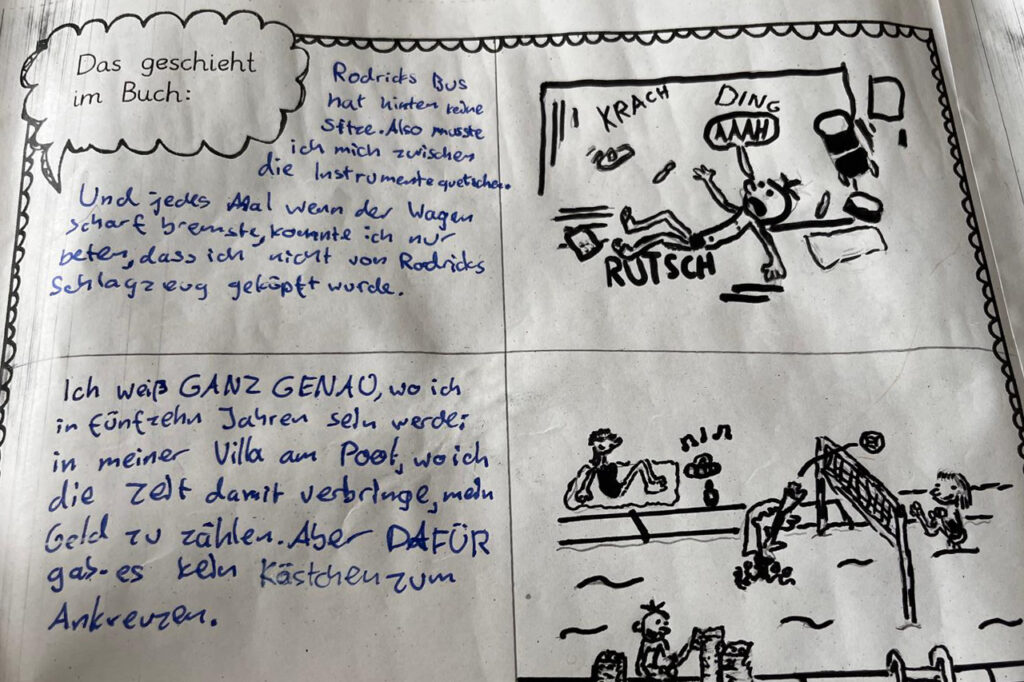 Das geschieht
im Buch:
Rodricks Bus
hat hinten keine
Sitze. Also musste
ich mich zwischen
die Instrumente quetschen.
Und jedes Mal wenn der Wagen
scharf bremste, konnte ich nur
beten, dass ich nicht von Rodricks
Schlagzeug geköpft wurde.
KRACH
DING
AAAH
RUTSCH
Ich weiß GANZ GENAU, wo ich
in fünfzehn Jahren sein werde:
in meiner Villa am Pool, wo ich
die Zeit damit verbringe, mein
Geld zu zählen. Aber DAFÜR
gab es kein Kästchen zum
Ankreuzen.